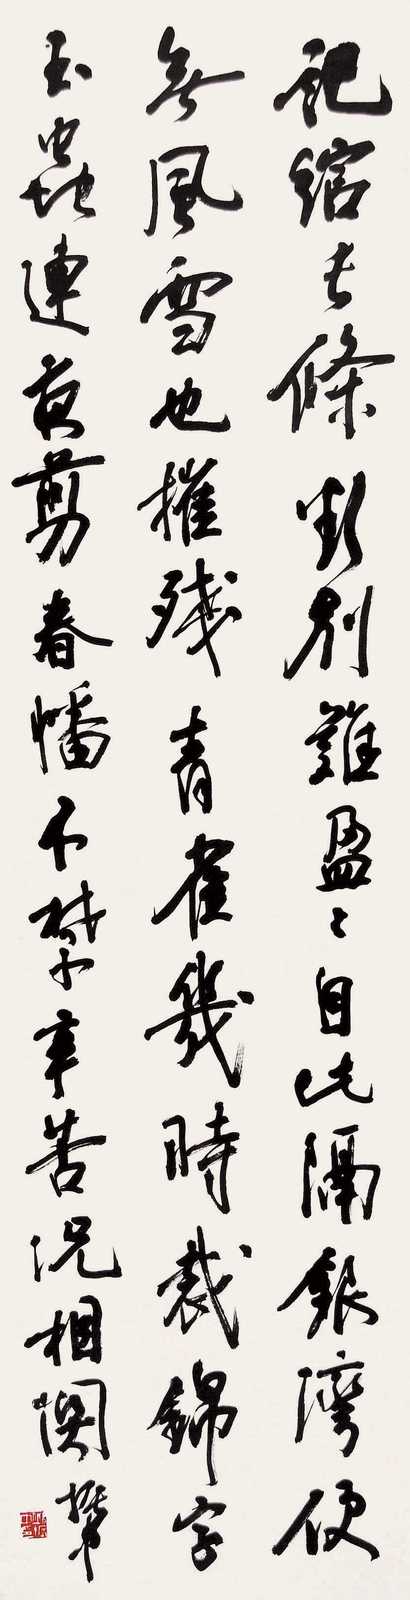 記綰長條欲別難盈々自此隔銀灣便
無風雪也摧殘青雀幾時裁錦字
玉蟲連夜剪春幡不禁辛苦況相関